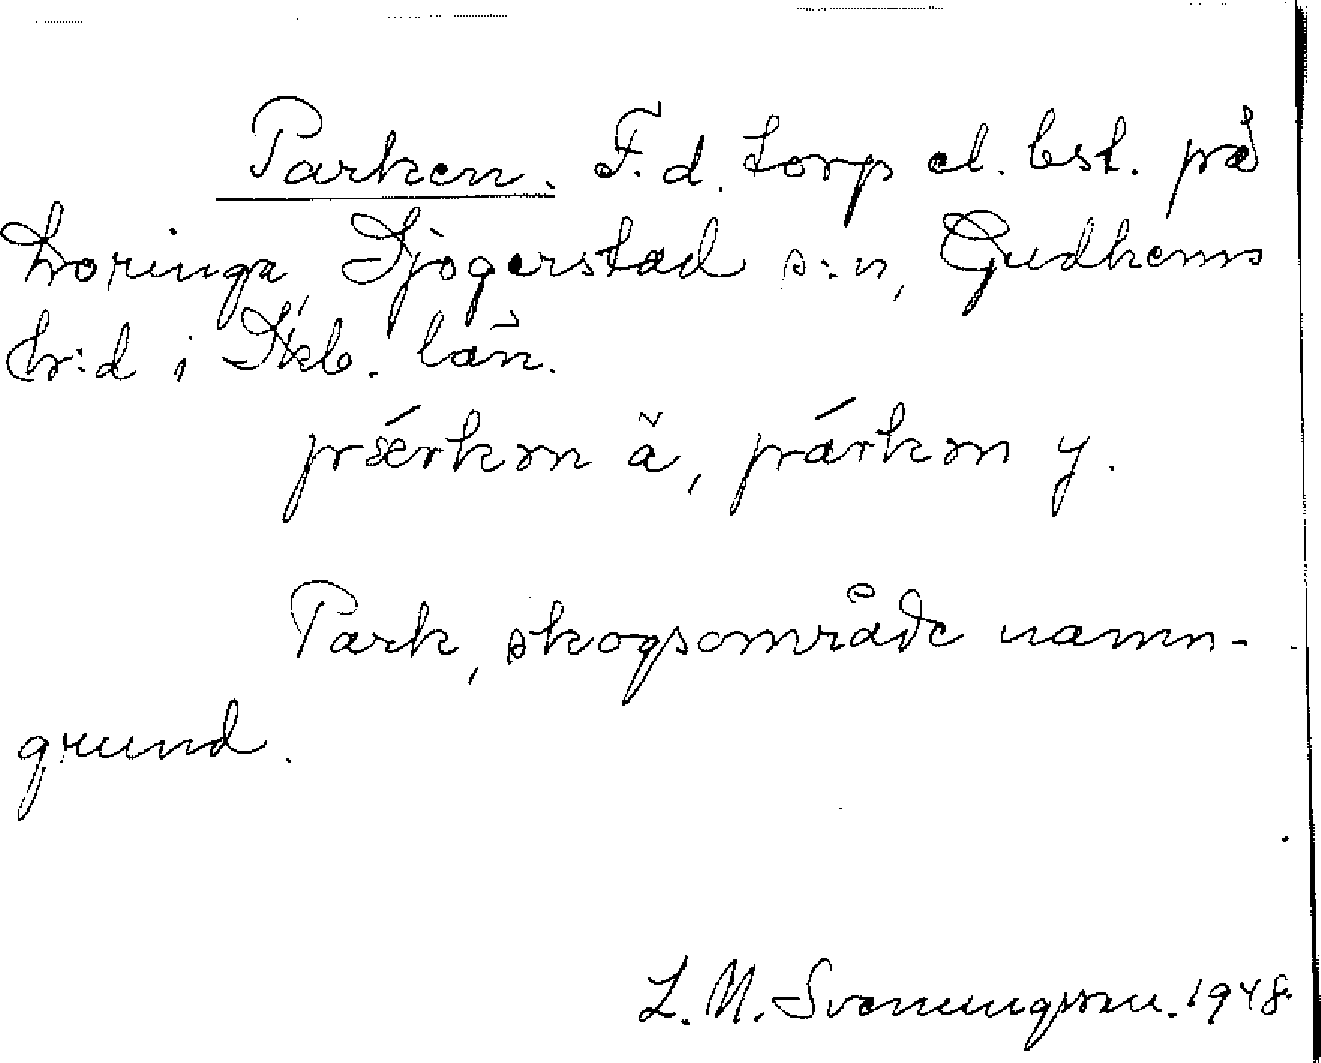 Parken. F. d. torp el. bst. på
Loringa, Sjogerstad s:n, Gudhems
hr:d i Skb. län.
pǽrkən ä, párkən y.
Park, skogsområde namn-
grund.
L. M. Svenungsson. 1948